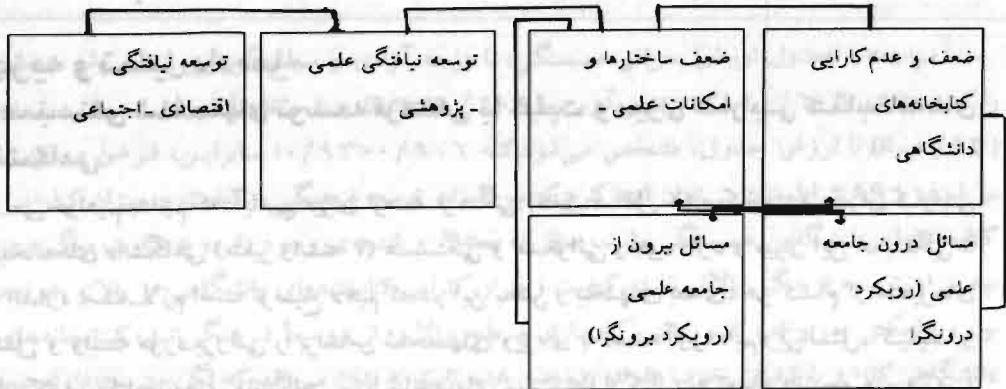 ضعف و عدم کارایی
کتابخانه‌های
دانشگاهی
ضعف ساختارها و
امکانات علمی -
توسعه نیافتگی علمی
- پژوهشی
توسعه نیافتگی
اقتصادی - اجتماعی
مسائل درون جامعه
علمی (رویکرد
درونگرا
مسائل بیرون از
جامعه علمی
(رویکرد برونگرا)